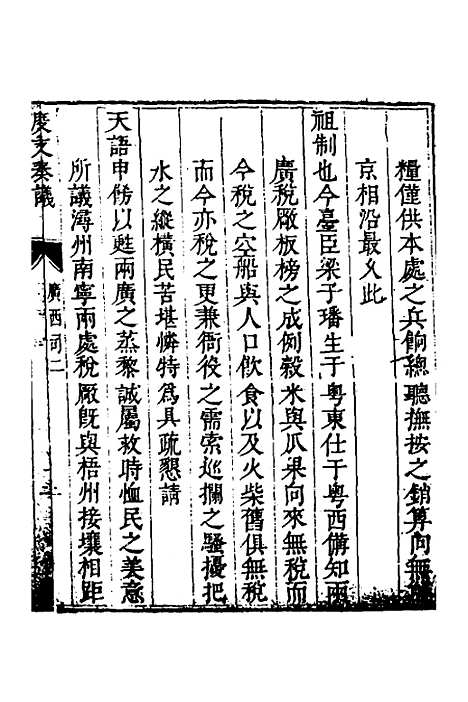 糧僅供本處之兵餉總聽撫按之銷算向無
京相沿最久此
祖制也今臺臣梁子璠生于粵東仕于粵西備知兩
廣稅厰板榜之成例穀米與瓜果向來無稅而
今稅之空船與人口飲食以及火柴舊俱無稅
而今亦稅之更兼衙役之需索巡攔之騷擾把
水之縱橫民苦堪憐特為具疏懇請
天語申飭以甦兩廣之蒸黎誠屬救時恤民之美意
所議潯州南寧兩處稅厰旣與梧州接壤相距
度支奏議
廣西司二